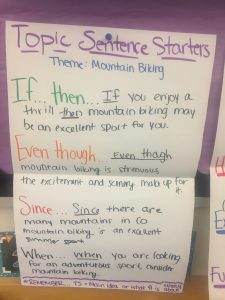 Topic Sentence Starters
Theme: Mountain Biking
If... then... If you enjoy a
thrill then mountain biking may
be an excellent sport for you.
Even though... Even though
mountain biking is strenuous
the excitement and scenery make up for
it.
Since... Since there are
many mountains in CO
mountain biking is an excellent
summer sport
When... When you are looking
for an adventurous sport, consider
mountain biking.
*REMEMBER TS = Main idea or what it is
about